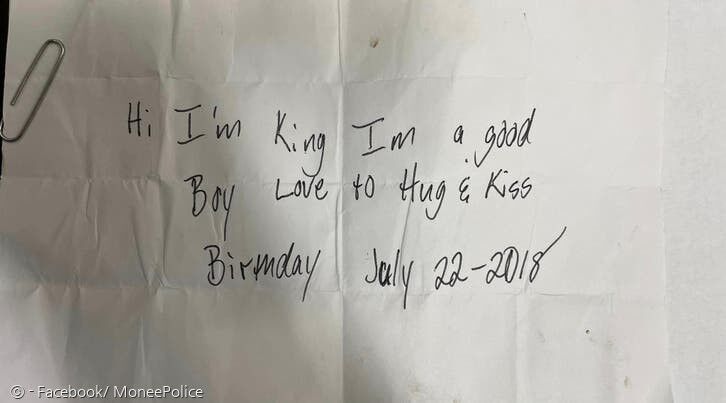 Hi I'm King Im a good
Boy Love to Hug & Kiss
Birthday July 22-2018
© - Facebook/ MoneePolice